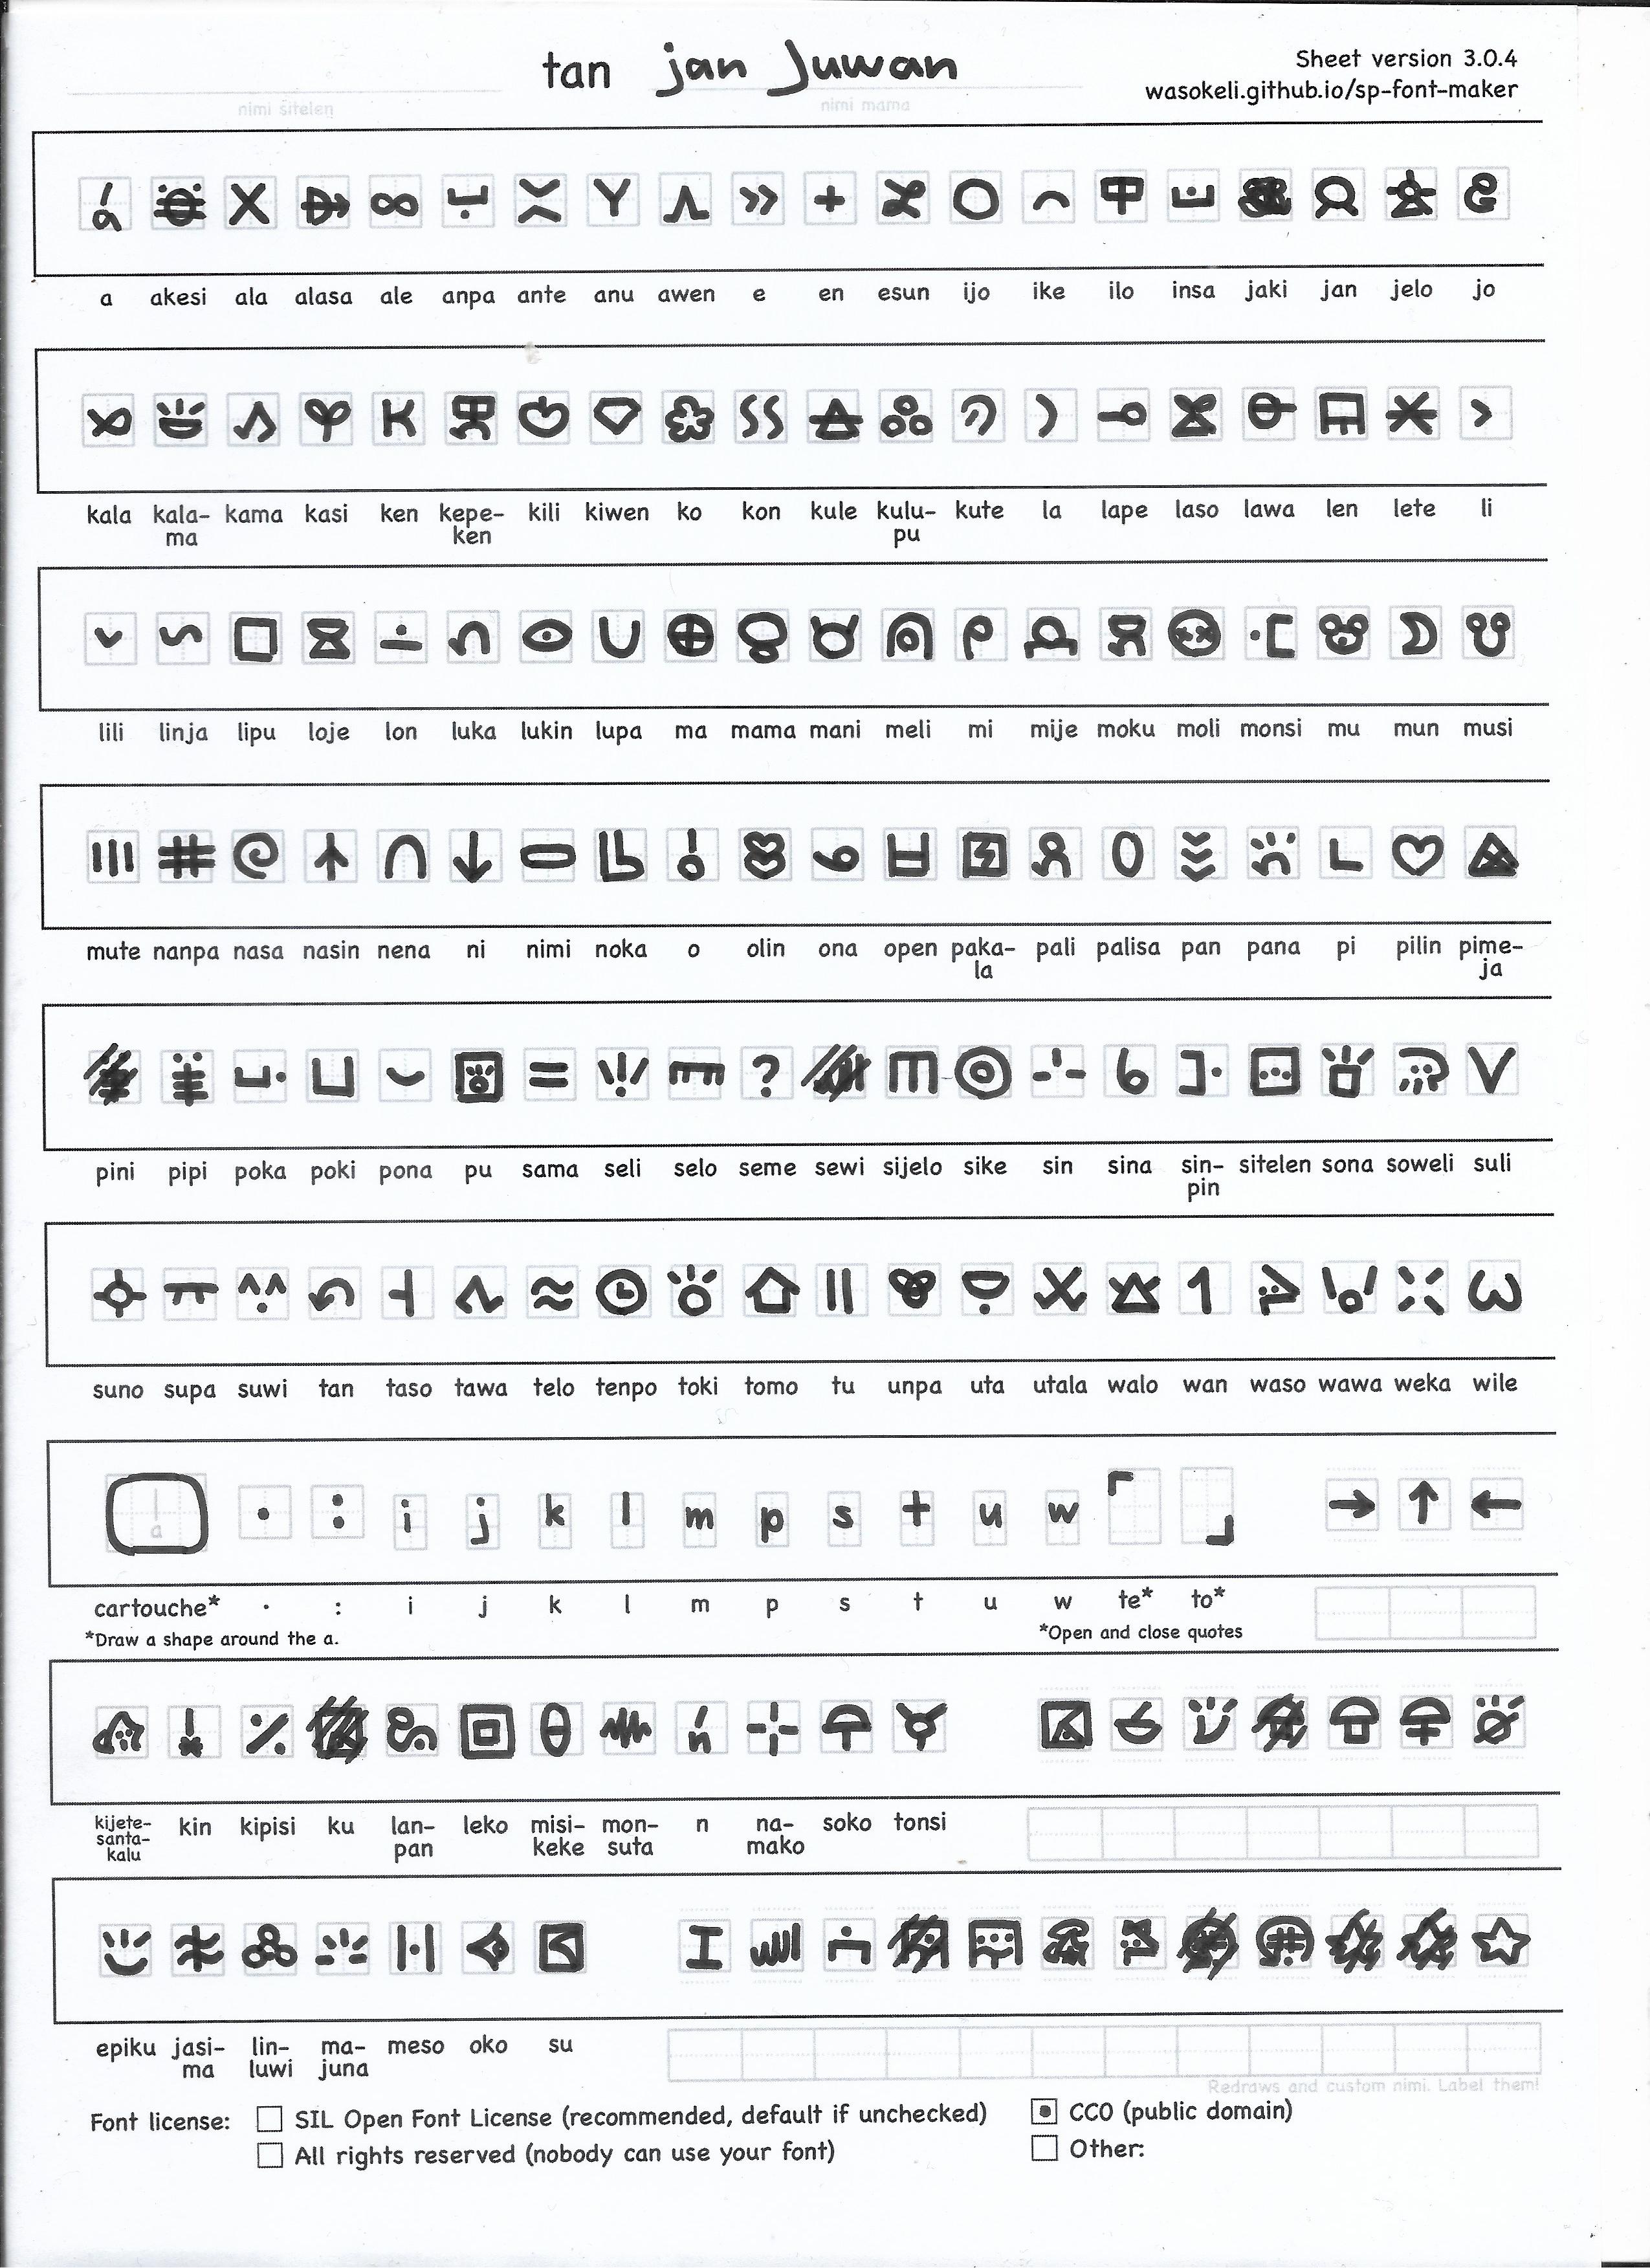 tan jan Juwan
Sheet version 3.0.4
wasokeli.github.io/sp-font-maker
nimi sitelen
nimi mama
a akesi ala alasa ale anpa ante anu awen e en esun ijo ike ilo insa jaki jan jelo jo
kala kala- kama kasi ken kepe- kili kiwen ko kon kule kulu- kute la lape laso lawa len lete li
ma ken pu
lili linja lipu loje lon luka lukin lupa ma mama mani meli mi mije moku moli monsi mu mun musi
mute nanpa nasa nasin nena ni nimi noka o olin ona open paka- pali palisa pan pana pi pilin pime-
la ja
?
pini pipi poka poki pona pu sama seli selo seme sewi sijelo sike sin sina sin- sitelen sona soweli suli
pin
suno supa suwi tan taso tawa telo tenpo toki tomo tu unpa uta utala walo wan waso wawa weka wile
a · : i j k l m p s t u w 「 」 → ↑ ←
cartouche* · : i j k l m p s t u w te* to*
*Draw a shape around the a.
*Open and close quotes
kijete- kin kipisi ku lan- leko misi- mon- n na- soko tonsi
santa- pan keke suta mako
kalu
epiku jasi- lin- ma- meso oko su
ma luwi juna
Redraws and custom nimi. Label them!
Font license: SIL Open Font License (recommended, default if unchecked)
CC0 (public domain)
All rights reserved (nobody can use your font)
Other: